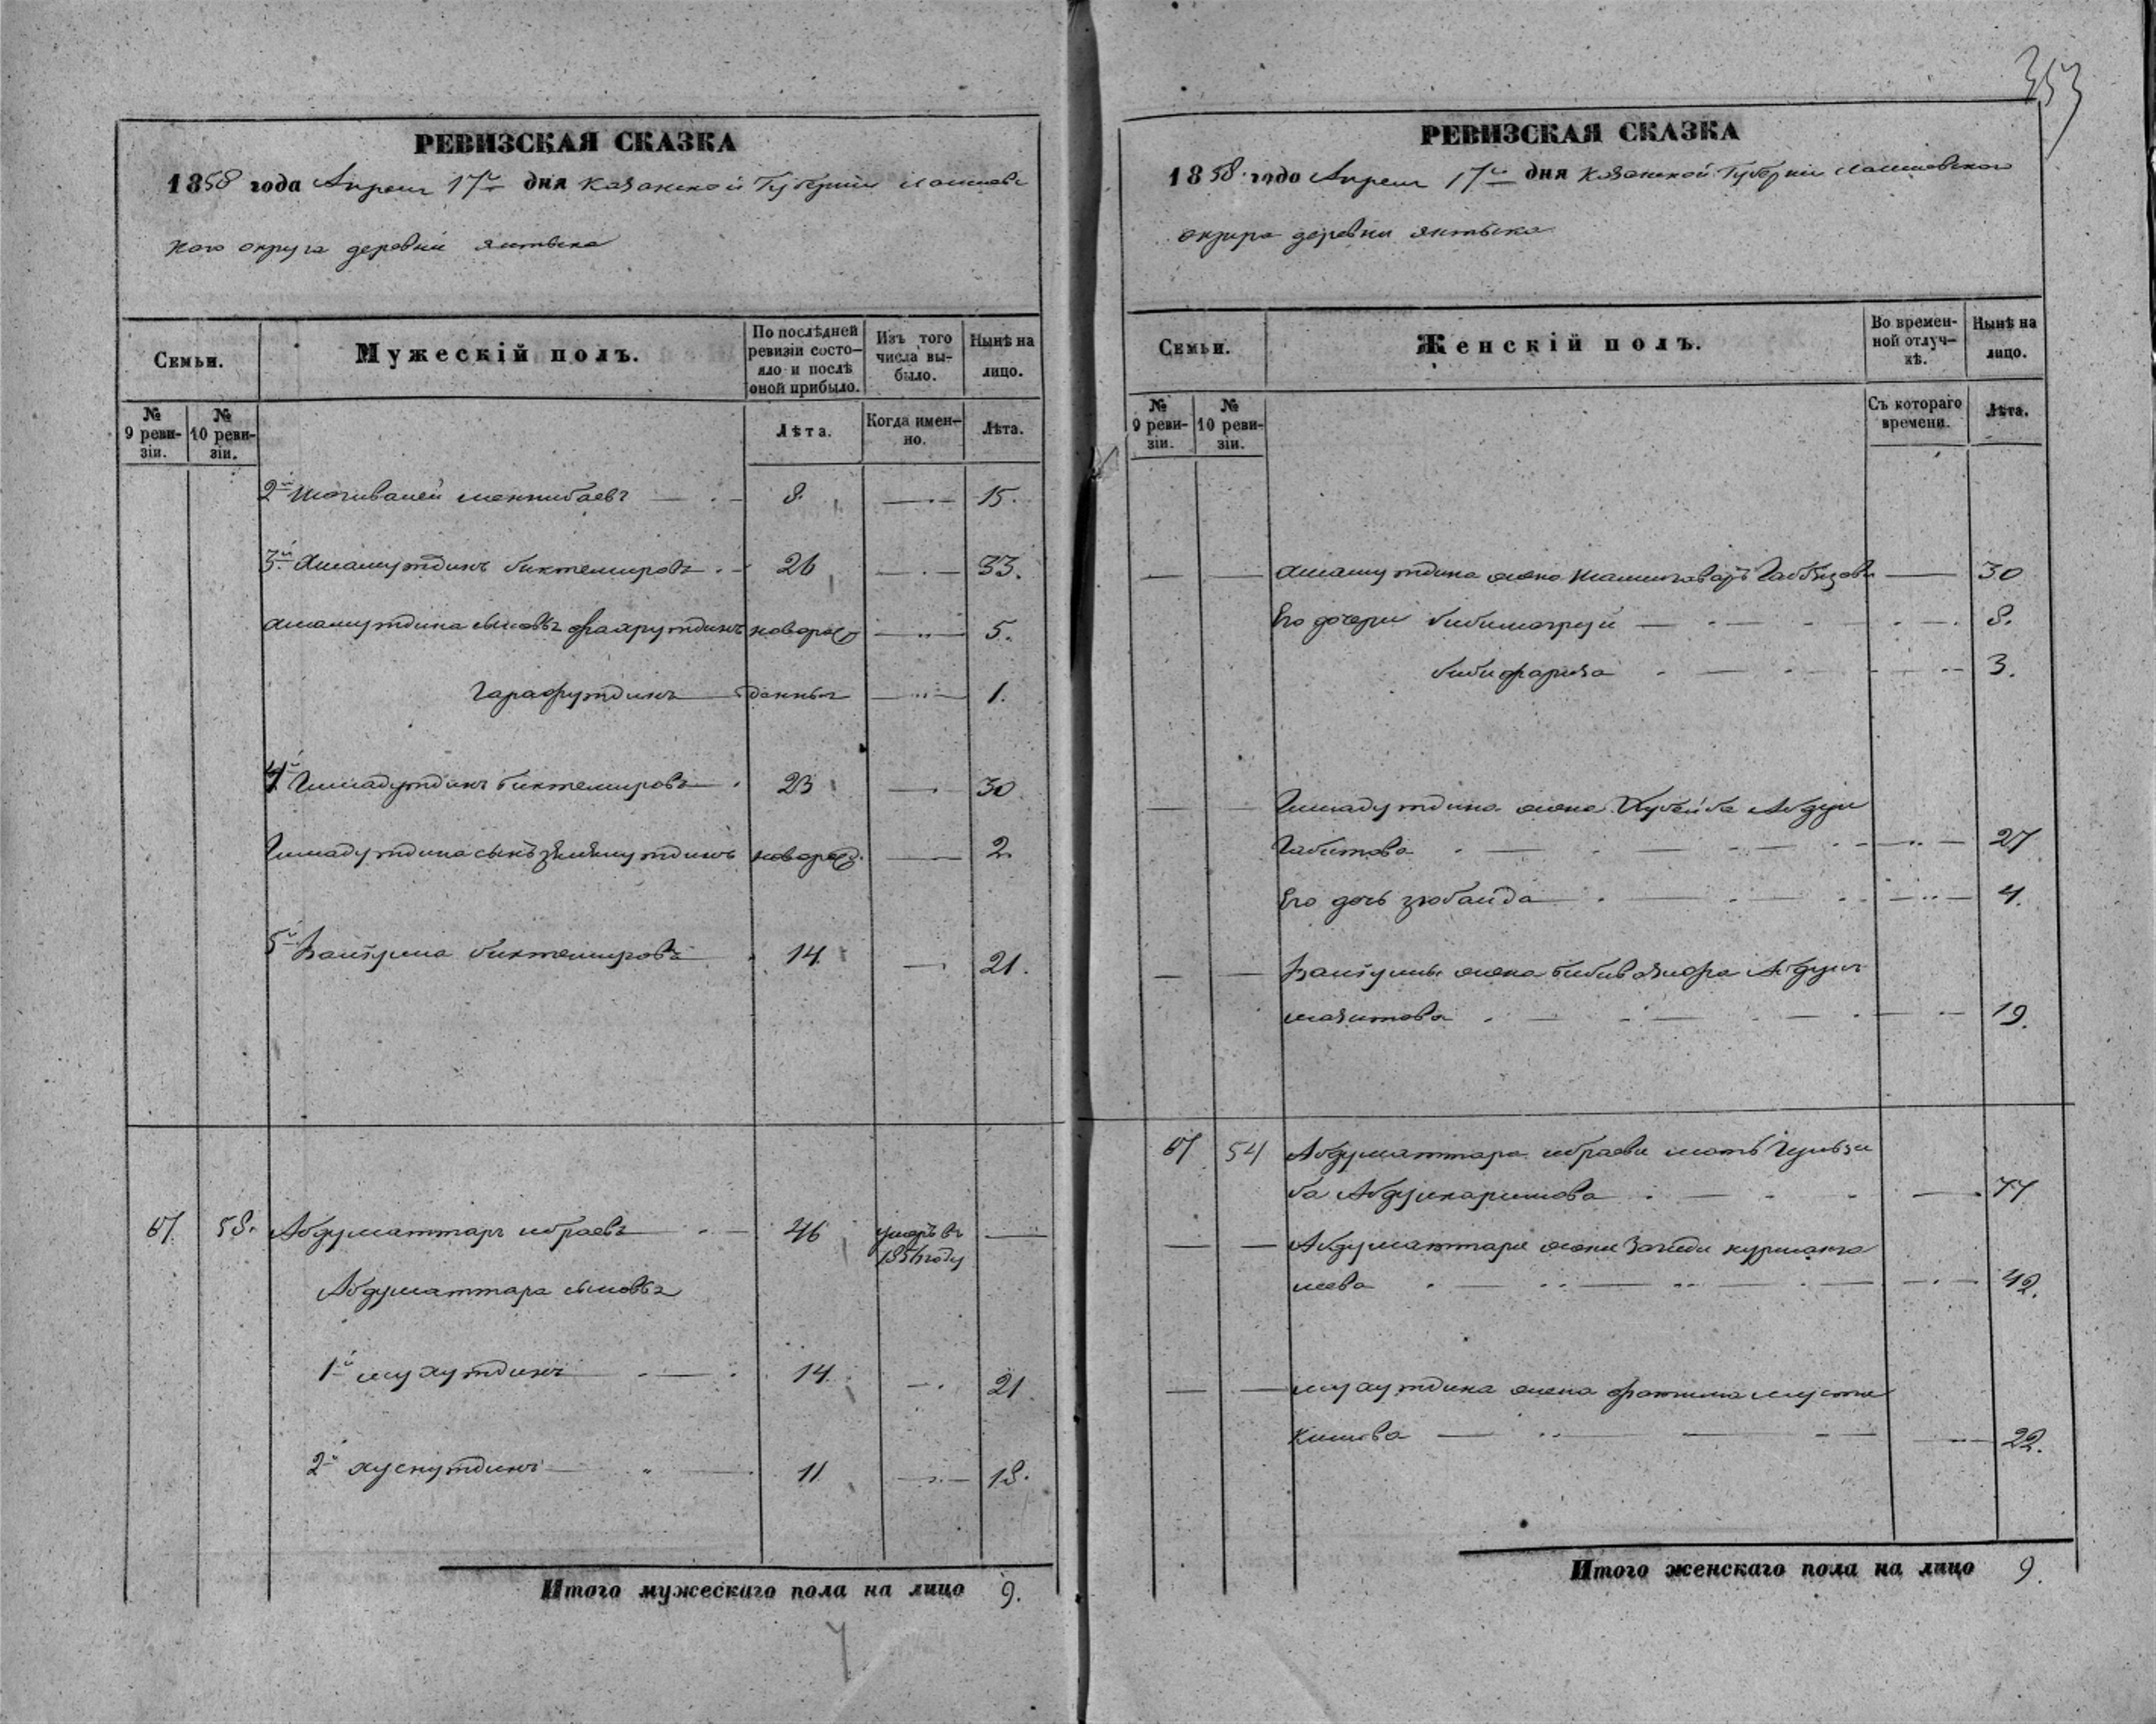 353
РЕВИЗСКАЯ СКАЗКА
1858 года Апреля 17го дня Казанской Губернии Лаишевс
каго округа деревни Янтыка
Семьи.
Мужескій полъ.
По послѣдней ревизіи состояло и послѣ оной прибыло.
Изъ того числа выбыло.
Нынѣ на лицо.
№ 9 ревизіи.
№ 10 ревизіи.
Лѣта.
Когда именно.
Лѣта.
2й 8. 15.
3й биктемировъ 26 33.
сыновья фахрутдинъ новорож 5.
гарафутдинъ денныя 1.
4й Гимадутдинъ биктемировъ 23 30
Гимадутдина сынъ новорож. 2.
5й биктемировъ 14 21.
67 58. Абдулгаттаръ ибраевъ 46 умеръ въ
году
Абдулгаттара сыновья
1й мухутдинъ 14 21
2й хуснутдинъ 11 18.
Итого мужескаго пола на лицо 9.
РЕВИЗСКАЯ СКАЗКА
1858 года Апреля 17го дня Казанской Губернии Лаишевскаго
округа деревни Янтыка
Семьи.
Женскій полъ.
Во временной отлучкѣ.
Нынѣ на лицо.
№ 9 ревизіи.
№ 10 ревизіи.
Съ котораго времени.
Лѣта.
жена 30
Его дочери 8.
бибифариза 3.
Гимадутдина жена Хубейба Абдул
Габитова 27
Его дочь зюбаида 4.
жена Абдул
мазитова 19.
67 54 Абдулгаттара ибраева мать Гульзи
ба Абдулкаримова 77
Абдулгаттара жена Загида курманга
леева 42.
мухутдина жена фатима муста
кимова 22.
Итого женскаго пола на лицо 9.